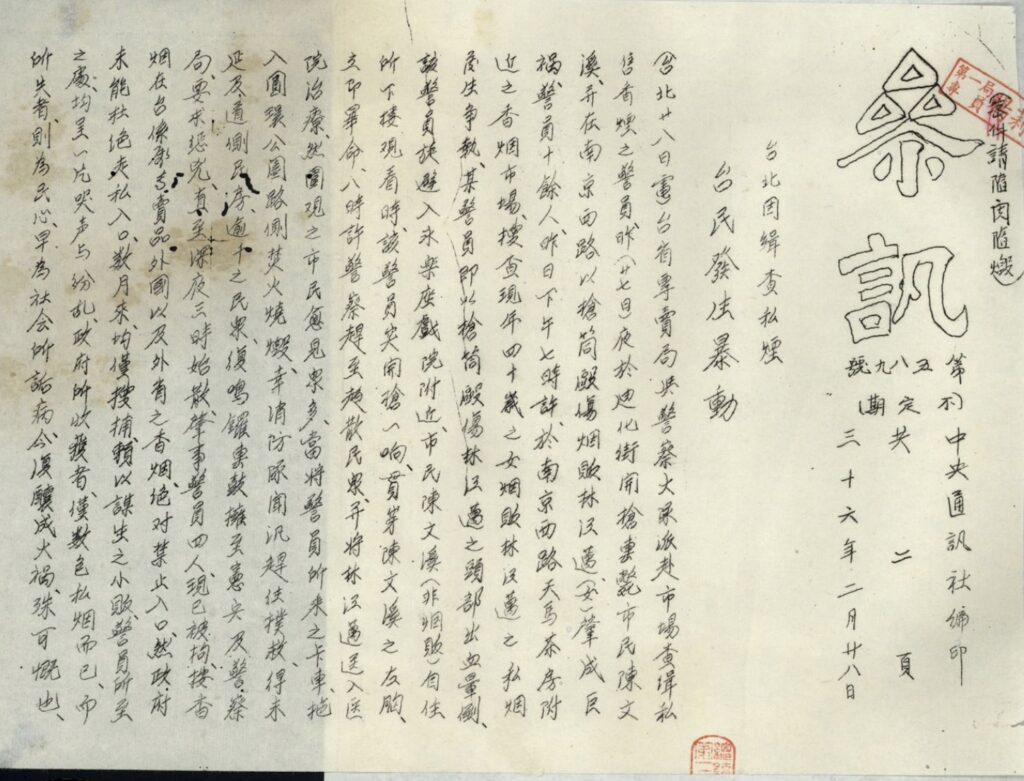 參訊
密件請閱閱後燬
第五八九號
(不定期)
共二頁
中央通訊社編印
三十六年二月廿八日
台北因緝查私煙
台民發生暴動
台北廿八日電台省專賣局與警察大隊派赴市場查緝私
售香煙之警員昨(廿七日)夜於迪化街開槍擊斃市民陳文
溪、并在南京西路以槍筒毆傷烟販林江邁(女)肇成巨
禍、警員十餘人、昨日下午七時許、於南京西路天馬茶房附
近之香烟市場、搜查現年四十歲之女烟販林江邁之私烟
發生爭執、某警員即以槍筒毆傷林江邁之頭部出血暈倒、
該警員旋避入永樂座戲院附近、市民陳文溪(非烟販)自住
所下樓現看時、該警員突開槍一响、貫穿陳文溪之左胸、
立即畢命、八時許警察趕至趨散民衆、并將林江邁送入医
院治療、然圍現之市民愈見衆多、當將警員所乘之卡車拖
入圓環公園路側焚火燒燬、幸消防隊聞汛趕往撲救、得未
延及道側民房、逾千之民衆、復鳴鑼擊鼓擁至憲兵及警察
局、要求懲兇、直至深夜三時始散、肇事警員四人、現已被拘、按香
烟在台係專賣品外國以及外省之香烟、絕对禁止入口、然政府
未能杜絕走私入口、數月來均僅搜捕賴以謀生之小販、警員所至
之處、均呈一片哭声与紛乱、政府所收獲者、僅數包私烟而已、而
所失者、則為民心、早為社会所詬病、今復釀成大禍、殊可慨也、